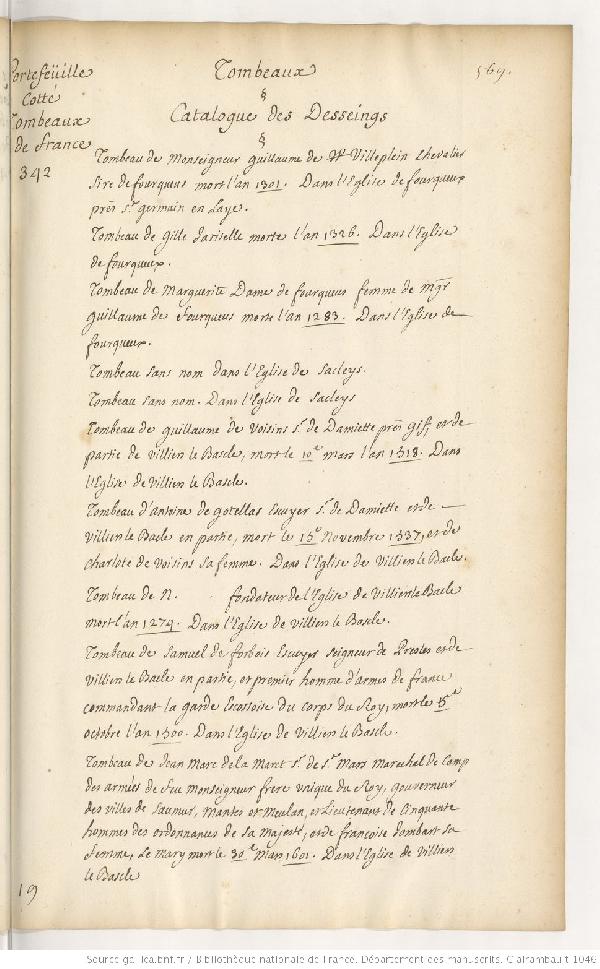 Portefeüille
Cotté
Tombeaux
de france
342
Tombeaux
569.
§
Catalogue des Desseings
§
Tombeau de Monseigneur guillaume de Villeplein Chevalier
sire de fourqueus mort l'an 1301. Dans l'Eglise de fourqueux
prés st. germain en Laye.
Tombeau de gille Dariselle morte l'an 1326. Dans l'Eglise
de fourqueux.
Tombeau de Marguerite Dame de fourqueus femme de mgr
guillaume de fourqueus morte l'an 1283. Dans l'Eglise de
fourqueux.
Tombeau sans nom dans l'Eglise de Sacleys.
Tombeau sans nom. Dans l'Eglise de Sacleys
Tombeau de guillaume de Voisins sr. de Damiette prés gif, et de
partie de villien le Bascle, mort le 10e mars l'an 1518. Dans
l'Eglise de villien le Bascle.
Tombeau d'antoine de gotellas Escuyer sr. de Damiette et de
villien le Bacle en partie, mort le 15e Novembre 1537, et de
charlote de voisins sa femme. Dans l'Eglise de Villien le Bacle.
Tombeau de N. fondateur de l'Eglise de Villien le Bacle
mort l'an 1274. Dans l'Eglise de villien le Bascle.
Tombeau de Samuel de forbois Escuyer Seigneur de Presles et de
villien le Bacle en partie, et premier homme d'armes de france
commandant la garde Ecossoise du corps du Roy, mort le 5e
octobre l'an 1500. Dans l'Eglise de Villien le Bascle.
Tombeau de Jean Marc de la Maret sr. de st. Mars Mareschal de Camp
des armées de feu Monseigneur frere unique du Roy, gouverneur
des villes de Saumur, Mantes et Meulan, et Lieutenant de Cinquante
hommes des ordonnances de sa Majesté, et de francoise Lombart sa
femme, Le Mary mort le 30e Mars 1601. Dans l'Eglise de Villien
le Bascle
19
Source gallica.bnf.fr / Bibliothèque nationale de France. Département des manuscrits. Clairambault 1046